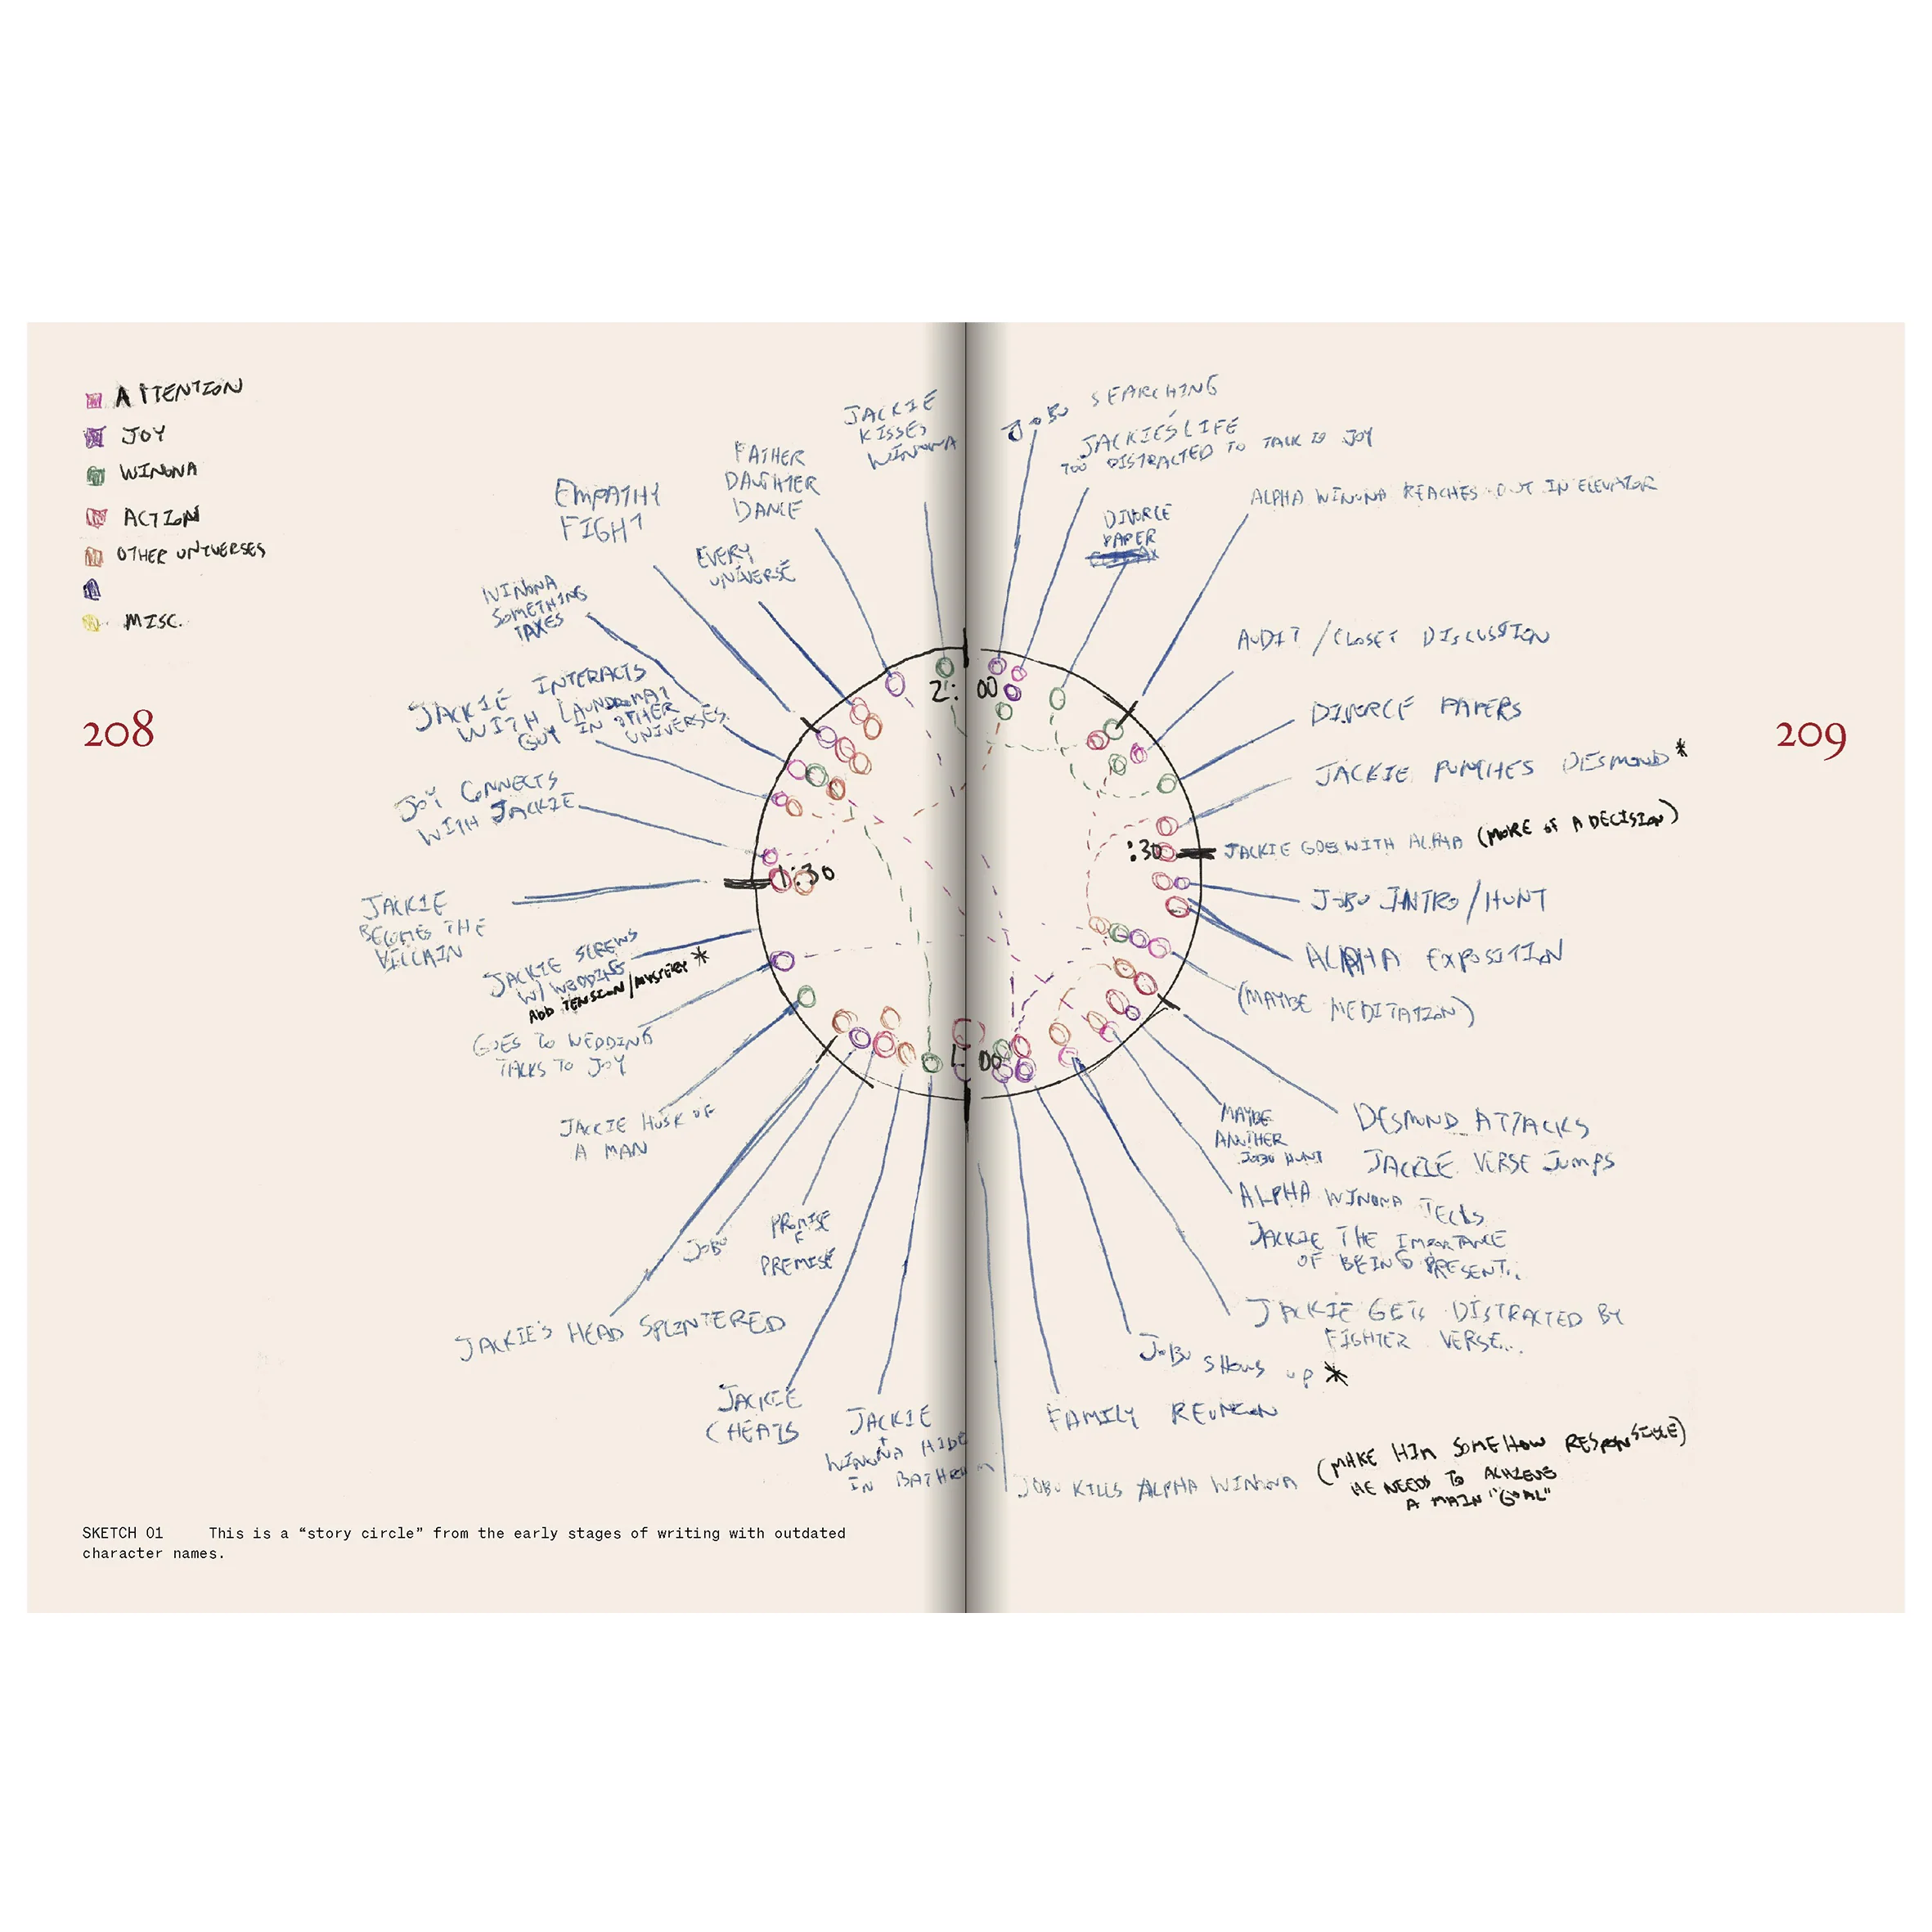 ATTENTION
JOY
WINONA
ACTION
OTHER UNIVERSES
MISC.
208
JACKIE
KISSES
WINONA
FATHER
DAUGHTER
DANCE
EVERY
UNIVERSE
EMPATHY
FIGHT
WINONA
SOMETHING
TAXES
JACKIE INTERACTS
WITH LAUNDROMAT
GUY IN OTHER
UNIVERSES
JOY CONNECTS
WITH JACKIE
JACKIE
BECOMES THE
VILLAIN
JACKIE SCREWS
W/ WEDDING
ADD TENSION/MYSTERY *
GOES TO WEDDING
TALKS TO JOY
JACKIE HUSK OF
A MAN
JACKIE'S HEAD SPLINTERED
JOBU
PROMISE
OF
PREMISE
JACKIE
CHEATS
JACKIE
+
WINONA HIDE
IN BATHROOM
2:00
:30
1:00
1:30
JOBU SEARCHING
JACKIE'S LIFE
TOO DISTRACTED TO TALK TO JOY
DIVORCE
PAPER
ALPHA WINONA REACHES OUT IN ELEVATOR
AUDIT / CLOSET DISCUSSION
DIVORCE PAPERS
JACKIE PUNCHES DESMOND *
JACKIE GOES WITH ALPHA (MORE OF A DECISION)
JOBU INTRO / HUNT
ALPHA EXPOSITION
(MAYBE MEDITATION)
209
DESMOND ATTACKS
JACKIE VERSE JUMPS
MAYBE
ANOTHER
JOBU HUNT
ALPHA WINONA TELLS
JACKIE THE IMPORTANCE
OF BEING PRESENT...
JACKIE GETS DISTRACTED BY
FIGHTER VERSE...
JOBU SHOWS UP *
FAMILY REUNION
JOBU KILLS ALPHA WINONA (MAKE HIM SOMEHOW RESPONSIBLE)
HE NEEDS TO ACHIEVE
A MAIN "GOAL"
SKETCH 01 This is a “story circle” from the early stages of writing with outdated
character names.